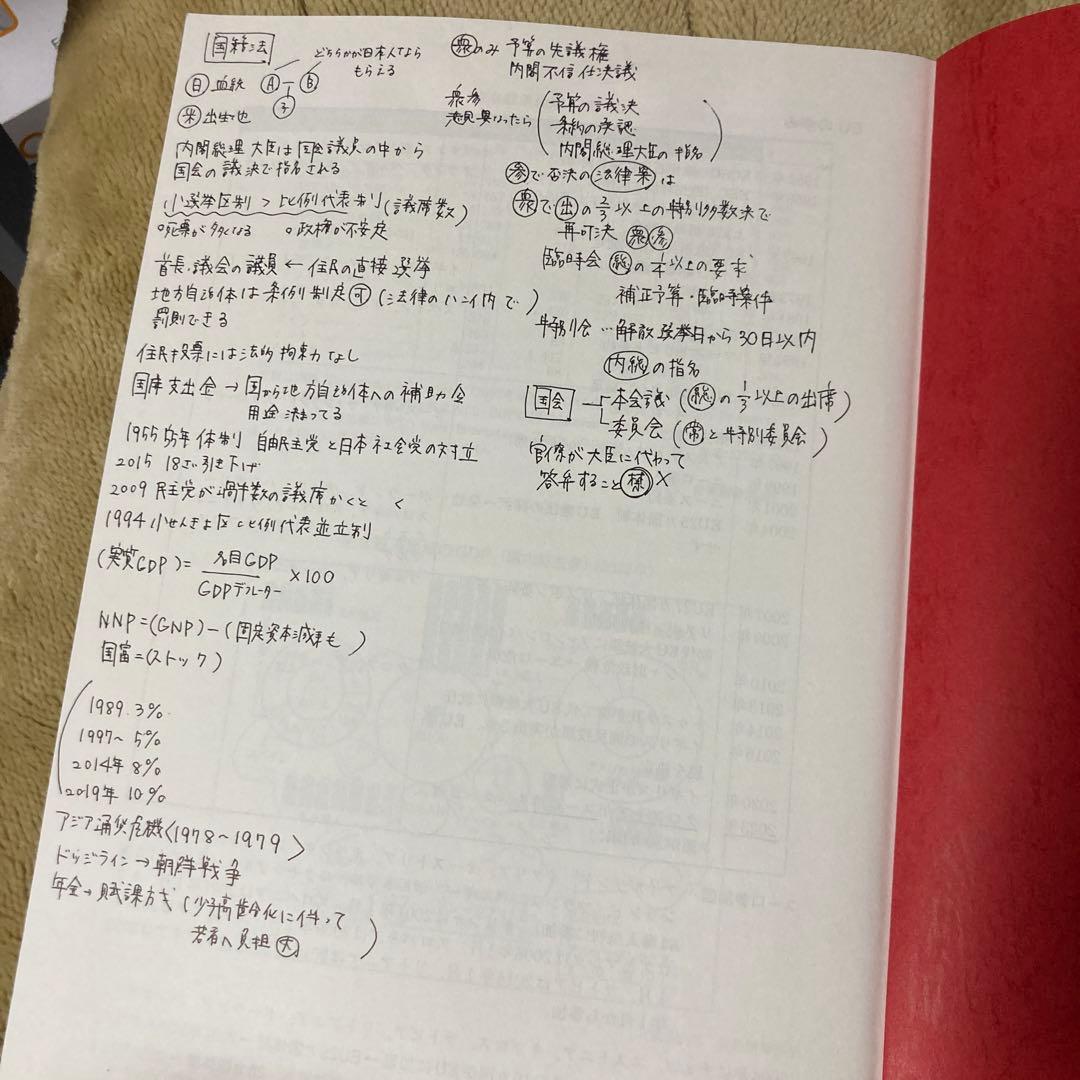 国籍法
どちらかが日本人なら
もらえる
日 血統 A-B
子
米 出生地
内閣総理大臣は国会議員の中から
国会の議決で指名される
小選挙区制 > 比例代表制 (議席数)
○死票が多くなる ○政権が不安定
首長・議会の議員 ← 住民の直接選挙
地方自治体は条例制定可 (法律のハンイ内で)
罰則できる
住民投票には法的拘束力なし
国庫支出金 → 国から地方自治体への補助金
用途決まってる
1955 55年体制 自由民主党と日本社会党の対立
2015 18才引き下げ
2009 民主党が過半数の議席かくとく
1994 小せんきょ区比例代表並立制
(実質GDP) = 名目GDP / GDPデフレーター ×100
NNP=(GNP)-(固定資本減耗)
国富=(ストック)
1989. 3%
1997~ 5%
2014年 8%
2019年 10%
アジア通貨危機〈1978~1979〉
ドッジライン → 朝鮮戦争
年金→賦課方式 (少子高齢化に伴って
若者へ負担大)
衆のみ 予算の先議権
内閣不信任決議
衆参
意見異なったら
(予算の議決
条約の承認
内閣総理大臣の指名)
参で否決の法律案は
衆で出の2/3以上の特別多数決で
再可決 衆参
臨時会 総の1/4以上の要求
補正予算・臨時案件
特別会 … 解散選挙日から30日以内
内総の指名
国会 本会議 (総の1/3以上の出席)
委員会 (常と特別委員会)
官僚が大臣に代わって
答弁すること禁×